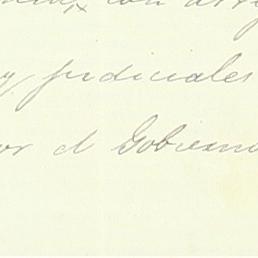 con
y judiciales
or el Gobierno